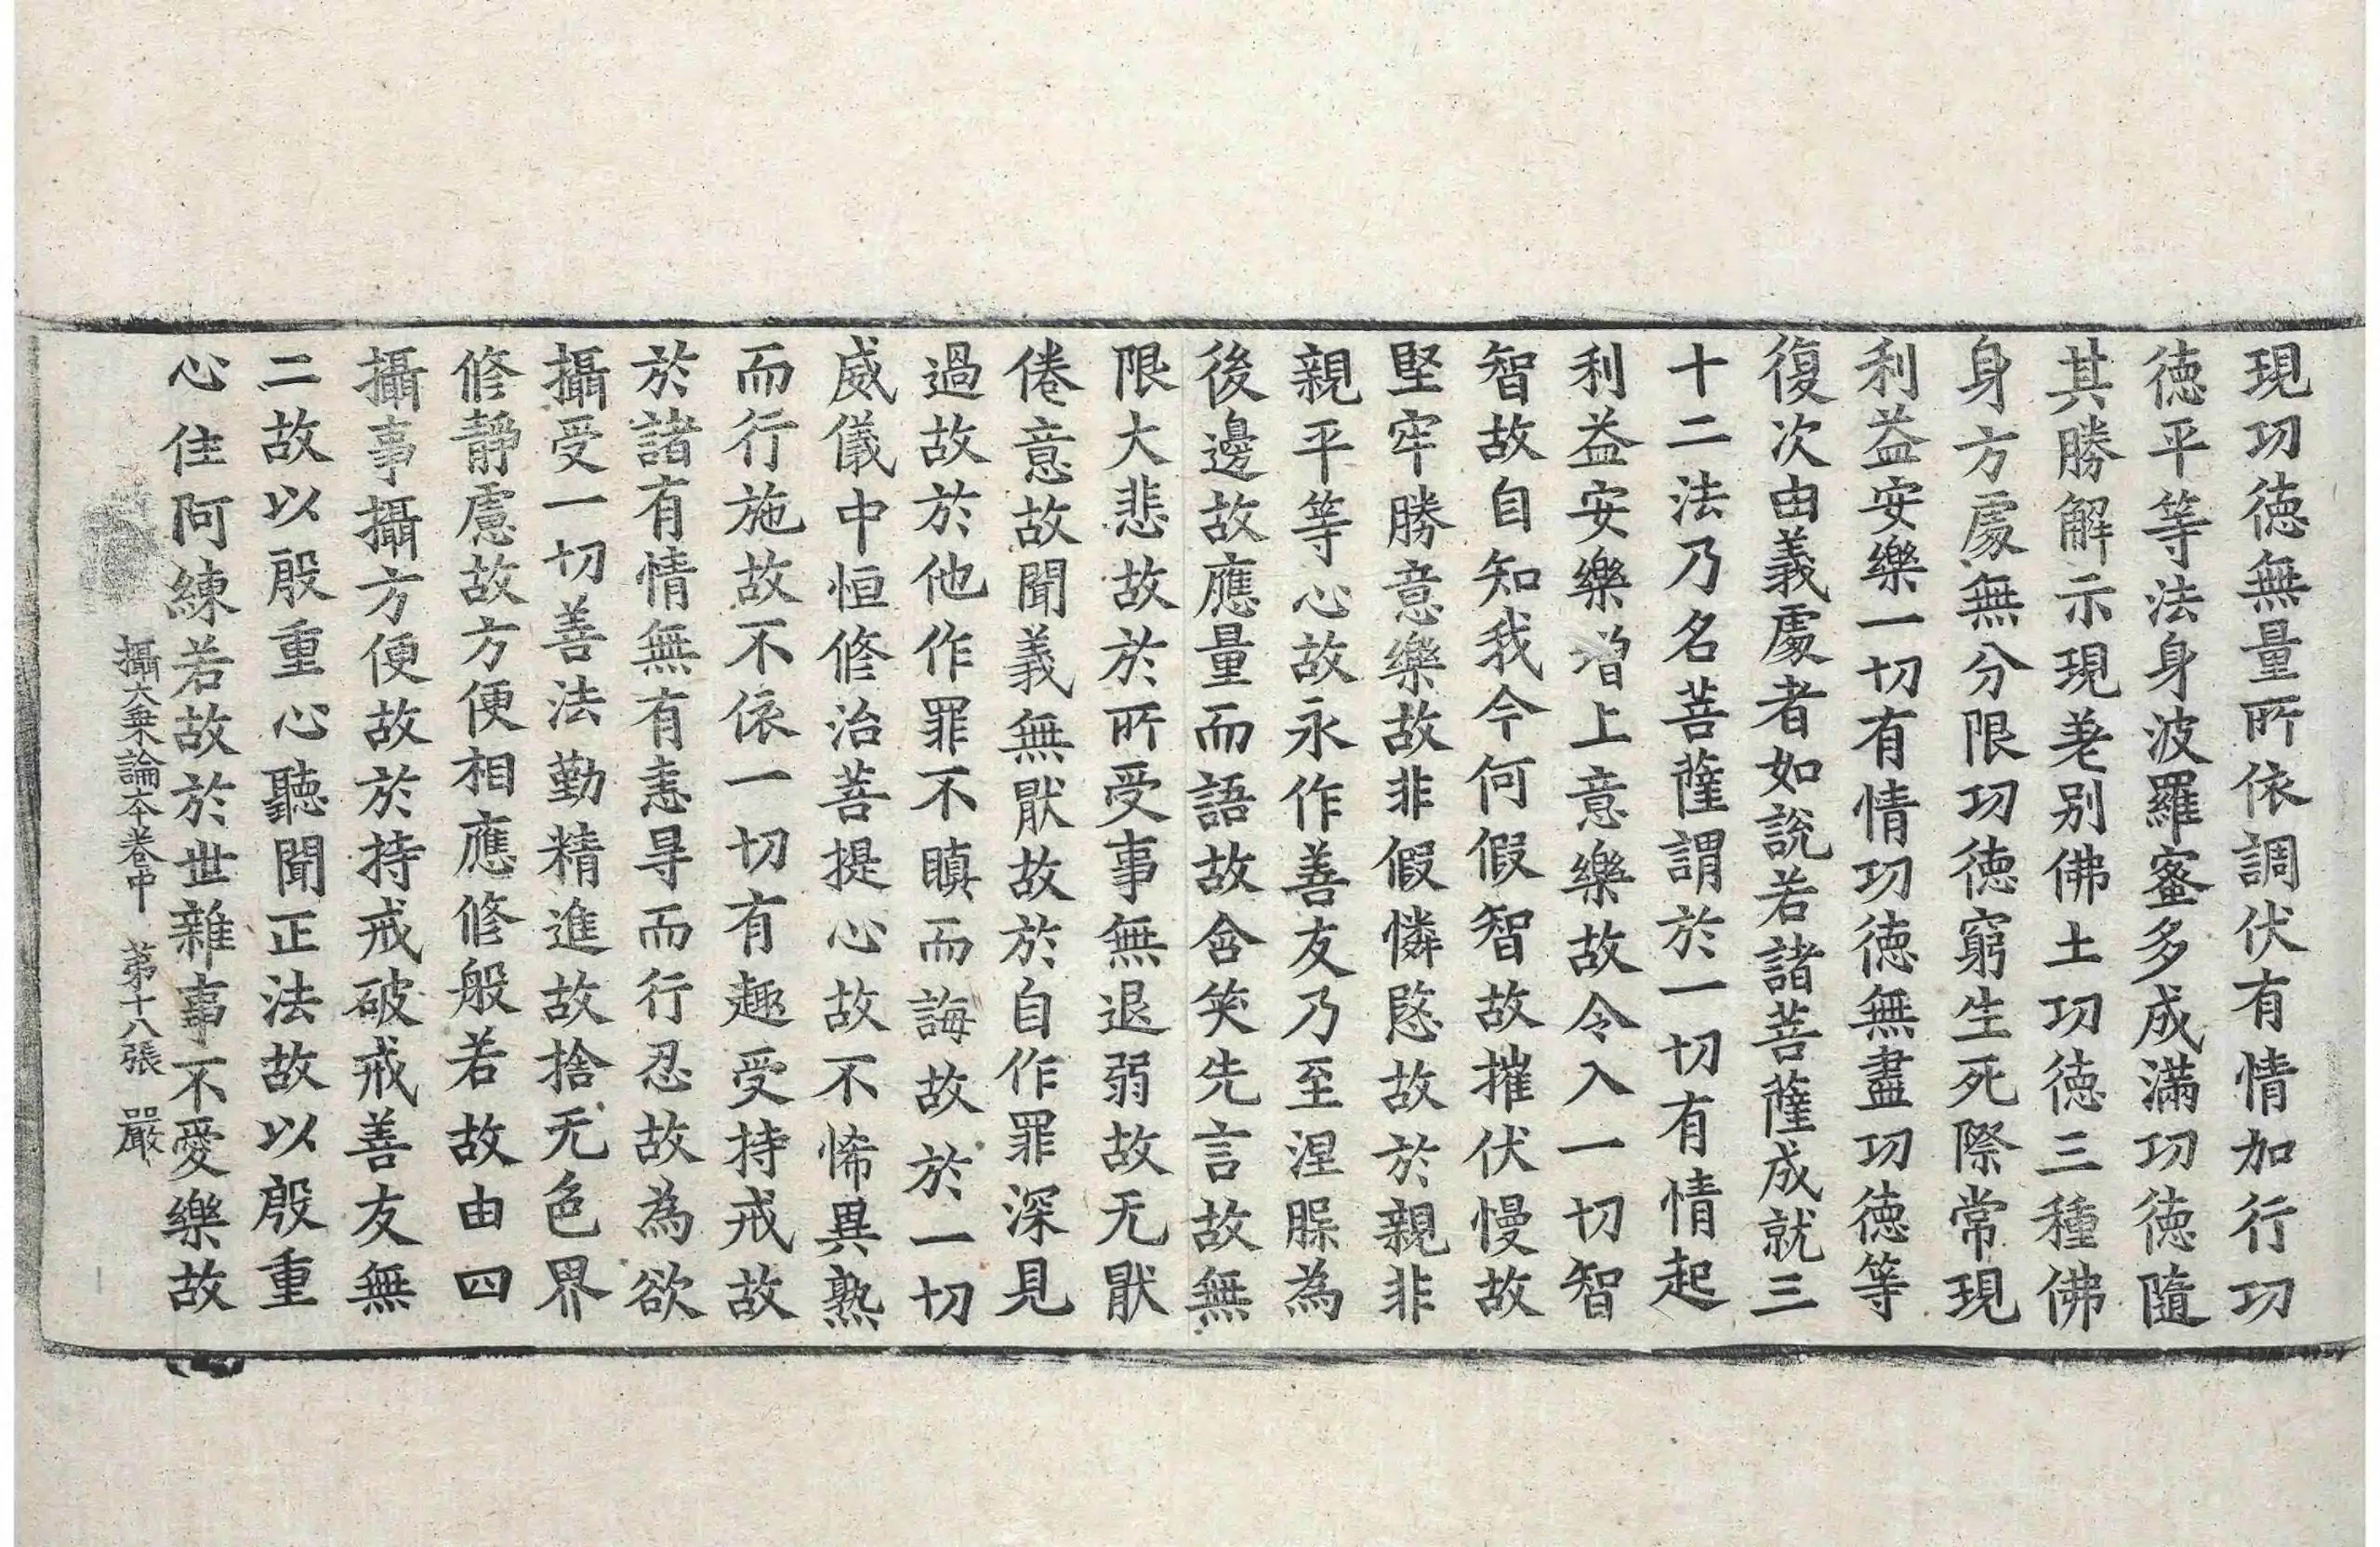 現功徳無量所依調伏有情加行功
徳平等法身波羅蜜多成滿功徳隨
其勝解示現差别佛土功徳三種佛
身方處無分限功徳窮生死際常現
利益安樂一切有情功徳無盡功徳等
復次由義處者如説若諸菩薩成就三
十二法乃名菩薩謂於一切有情起
利益安樂增上意樂故令入一切智
智故自知我今何假智故摧伏慢故
堅牢勝意樂故非假憐愍故於親非
親平等心故永作善友乃至涅槃為
後邊故應量而語故含笑先言故無
限大悲故於所受事無退弱故无猒
倦意故聞義無猒故於自作罪深見
過故於他作罪不瞋而誨故於一切
威儀中恒修治菩提心故不悕異熟
而行施故不依一切有趣受持戒故
於諸有情無有恚㝵而行忍故為欲
攝受一切善法勤精進故捨无色界
修靜慮故方便相應修般若故由四
攝事攝方便故於持戒破戒善友無
二故以殷重心聽聞正法故以殷重
心住阿練若故於世雜事不愛樂故
攝大乘論本卷中 苐十八張 嚴